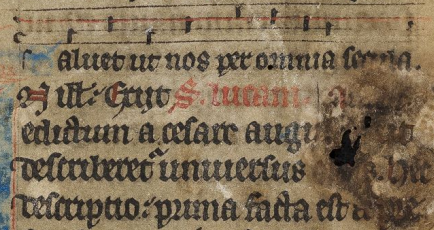 saluet ut nos per omnia secula.
In ill: Exiit S. lucam.
edictum a cesare augu
describeret uniuersus
descriptio: prima facta est a